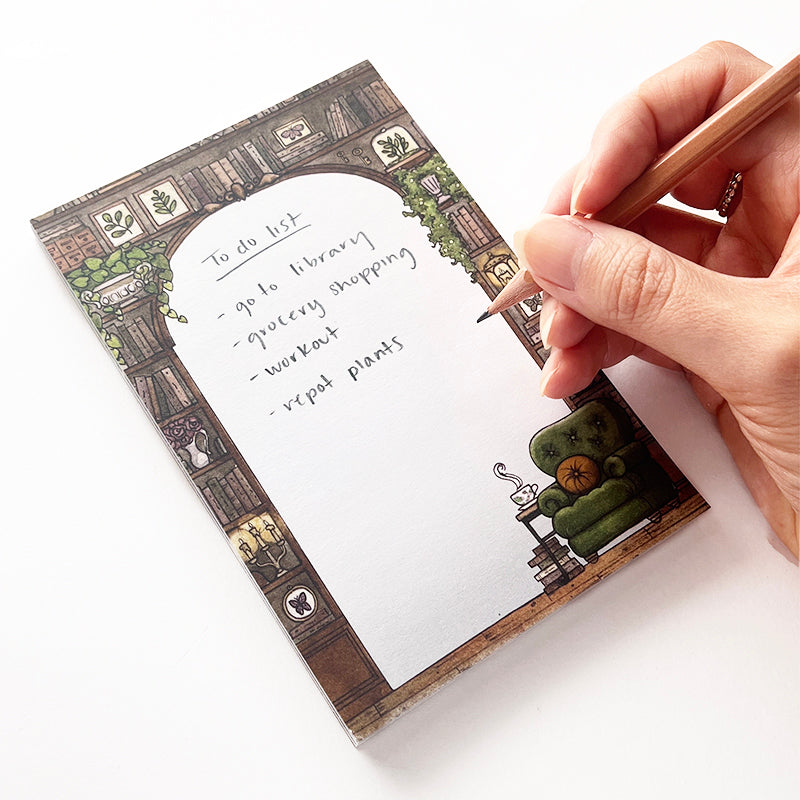 To do list
- go to library
- grocery shopping
- workout
- repot plants